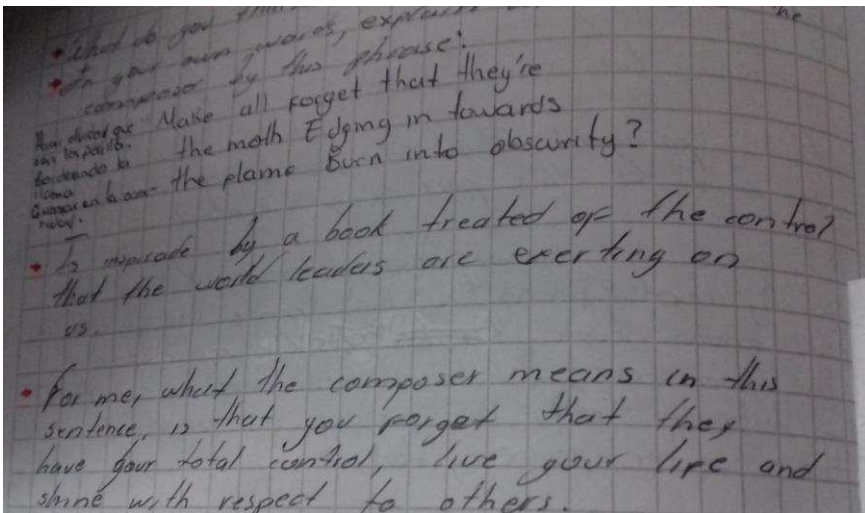 • What do you think the
• In your own words, express
composer by this phrase:
"Make all forget that they're
the moth Edging in towards
the flame Burn into obscurity?
• Is inspirade by a book treated of the control
that the world leaders are exerting on
us.
• For me, what the composer means in this
sentence, is that you forget that they
have your total control, live your life and
shine with respect to others.